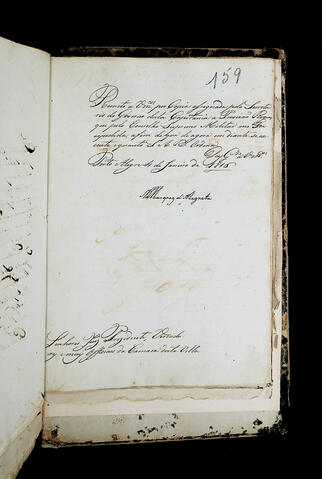 159
Remetto a Vmces por Copia assignada pelo Secreta-
rio do Governo desta Capitania a Provizão Regia
que pelo Conselho Supremo Militar me foi
a fim de que de agora em diante
quanto S. A. R. Ordena.
Ds. Gde. a Vmces
Porto Alegre de Janeiro de
Marquez d'Alegrete
Senhores Juiz Prezidente, Vereado
es e mais Officiaes da Camara desta Villa